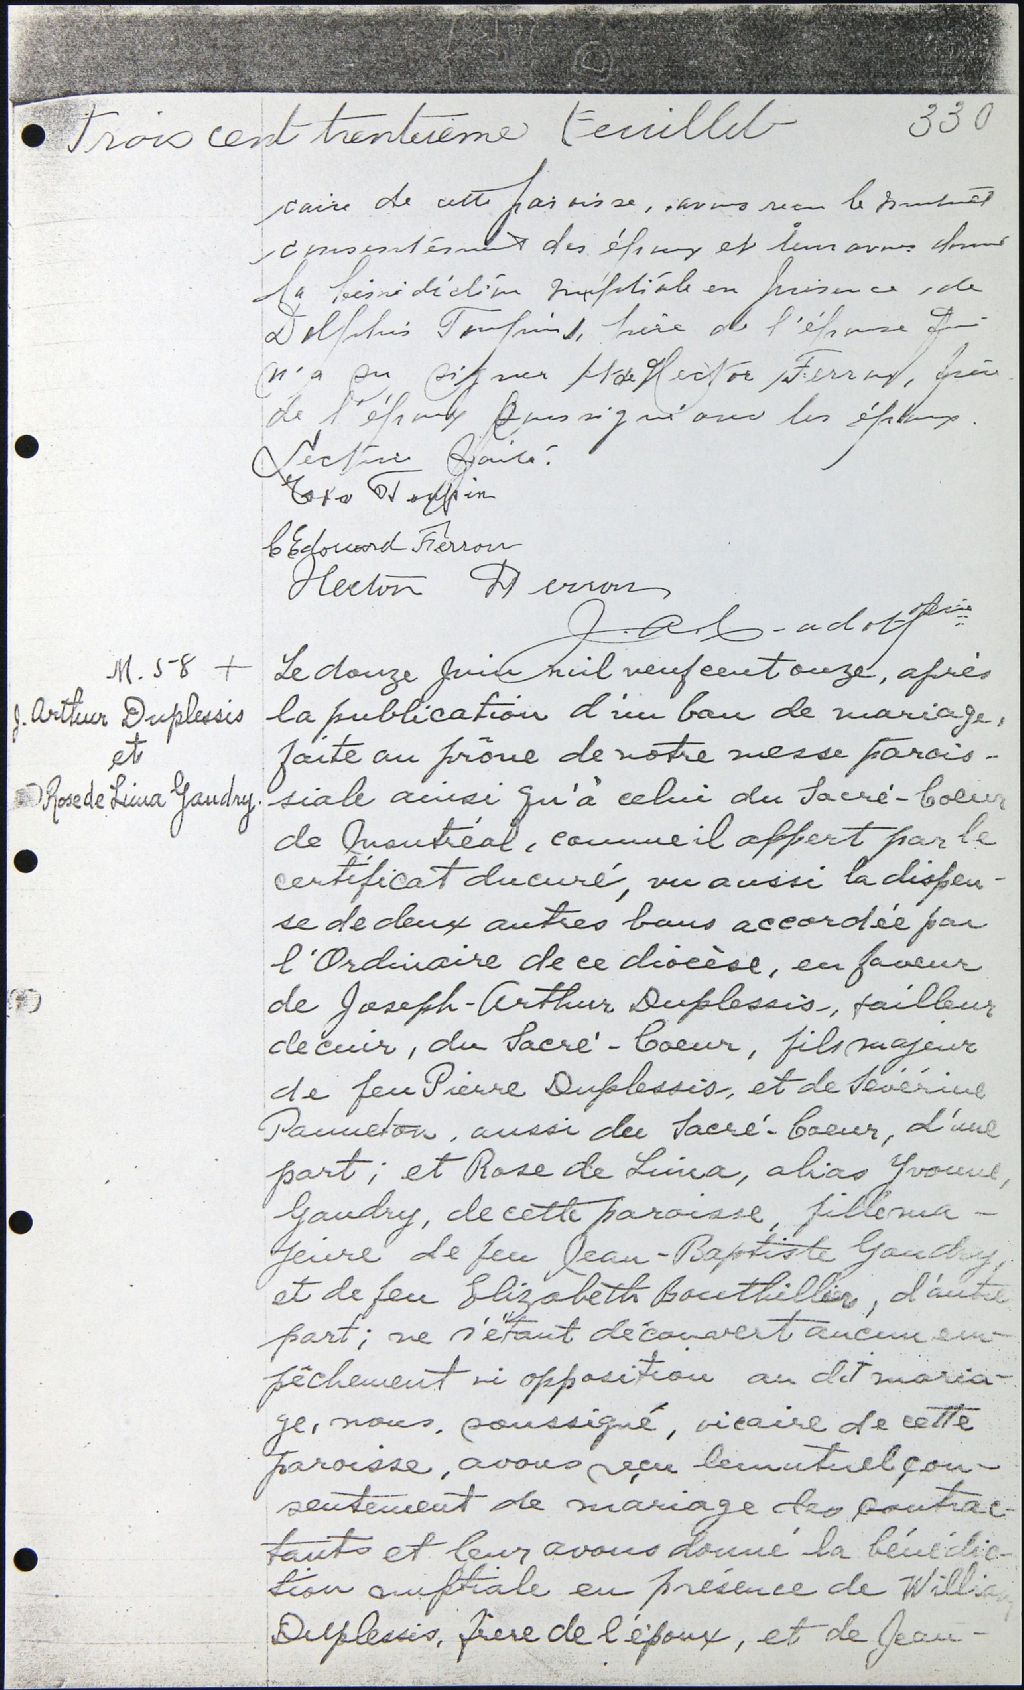 Trois cent trentième feuillet 330
caire de cette paroisse, avons reçu le mutuel
consentement des époux et leur avons donné
la bénédiction nuptiale en présence de
Delphis Toupin, père de l'épouse qui
n'a su signer et de Hector Ferron, frère
de l'époux soussigné avec les époux.
Lecture faite.
Rose Toupin
Edouard Ferron
Hector Ferron
M. 58 +
J. Arthur Duplessis
et
Rose de Lima Gaudry.
Le douze Juin mil neuf cent onze, après
la publication d'un ban de mariage,
faite au prône de notre messe parois-
siale ainsi qu'à celui du Sacré-Coeur
de Montréal, comme il appert par le
certificat du curé, vu aussi la dispen-
se de deux autres bans accordée par
l'Ordinaire de ce diocèse, en faveur
de Joseph-Arthur Duplessis, tailleur
de cuir, du Sacré-Coeur, fils majeur
de feu Pierre Duplessis, et de Sévérine
Panneton, aussi du Sacré-Coeur, d'une
part; et Rose de Lima, alias Yvonne,
Gaudry, de cette paroisse, fille ma-
jeure de feu Jean-Baptiste Gaudry,
et de feu Elizabeth Bouthillier, d'autre
part; ne s'étant découvert aucun em-
pêchement ni opposition au dit maria-
ge, nous, soussigné, vicaire de cette
paroisse, avons reçu le mutuel con-
sentement de mariage des contrac-
tants et leur avons donné la bénédic-
tion nuptiale en présence de William
Duplessis, frère de l'époux, et de Jean-